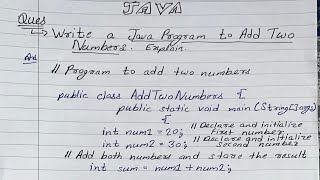 JAVA
Ques
Write a Java Program to Add Two
Numbers. Explain.
// Program to add two numbers
public class AddTwoNumbers {
public static void main (String[] args)
// Declare and initialize
int num1 = 20; first number
// Declare and initialize
int num2 = 30; second number
// Add both numbers and store the result
int sum = num1 + num2;